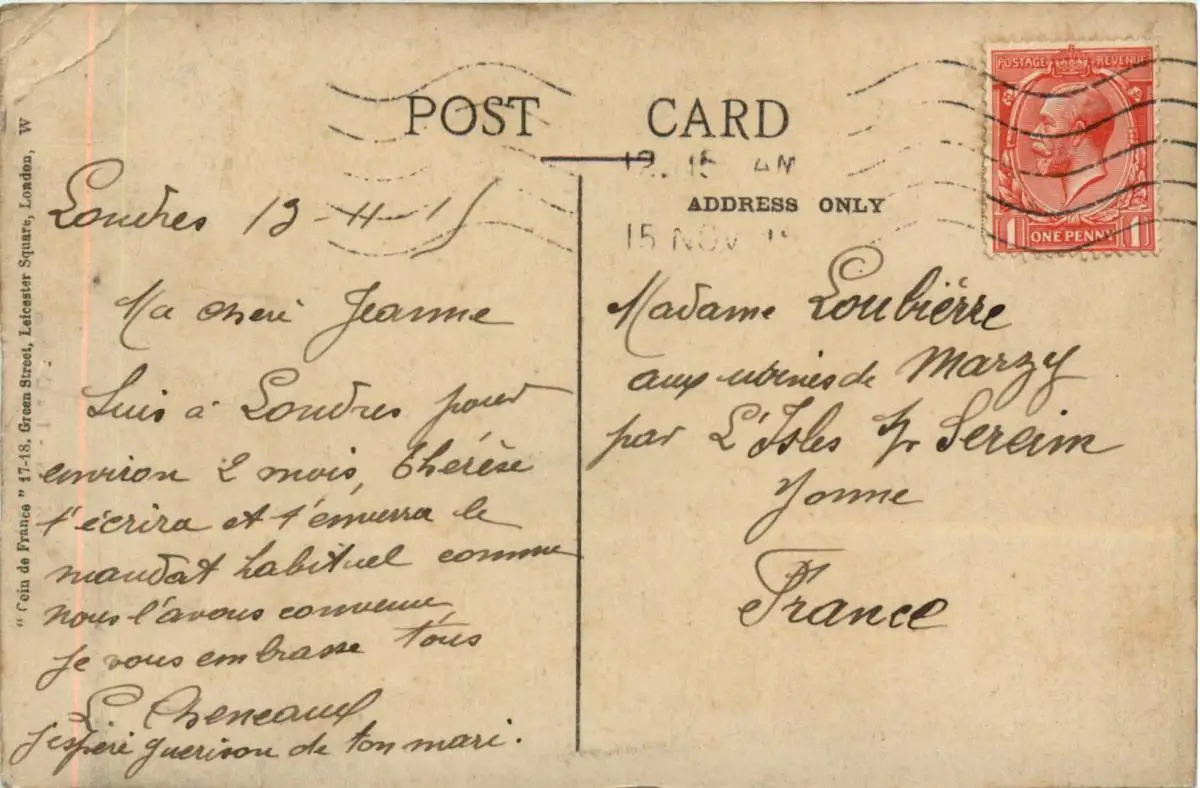 POST CARD
12.15 AM
15 NOV
ADDRESS ONLY
POSTAGE REVENUE
1 ONE PENNY 1
"Coin de France" 17-18, Green Street, Leicester Square, London, W
Londres 13-11-15
Ma cheré Jeanne
Suis à Londres pour
environ 2 mois, Thérèse
t'écrira et t'enverra le
mandat habituel comme
nous l'avons convenu,
je vous embrasse tous
L. Cheneaux
J'espéré guerison de ton mari.
Madame Loubiérre
aux usines de Marzy
par L'Isles s/ Sereim
Yonne
France